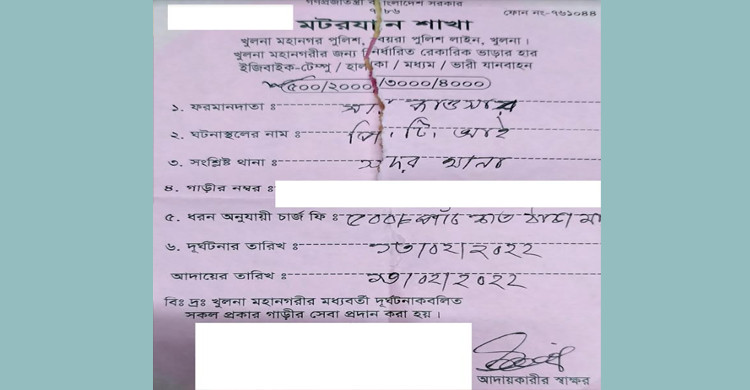 গণপ্রজাতন্ত্রী বাংলাদেশ সরকার
৭৮৬
ফোন নং-৭৬১০৪৪
মটরযান শাখা
খুলনা মহানগর পুলিশ, বয়রা পুলিশ লাইন, খুলনা।
খুলনা মহানগরীর জন্য নির্ধারিত রেকারিক ভাড়ার হার
ইজিবাইক-টেম্পু / হালকা / মধ্যম / ভারী যানবাহন
৫০০/২০০০/৩০০০/৪০০০
১. ফরমানদাতা ঃ
২. ঘটনাস্থলের নাম ঃ পি, টি, আই
৩. সংশ্লিষ্ট থানা ঃ সদর থানা
৪. গাড়ীর নম্বর ঃ
৫. ধরন অনুযায়ী চার্জ ফি ঃ ৫০০/- পাঁচ শত টাকা মা
৬. দূর্ঘটনার তারিখ ঃ ১৬/০২/২০২২
আদায়ের তারিখ ঃ ১৬/০২/২০২২
বিঃ দ্রঃ খুলনা মহানগরীর মধ্যবর্তী দূর্ঘটনাকবলিত
সকল প্রকার গাড়ীর সেবা প্রদান করা হয়।
আদায়কারীর স্বাক্ষর